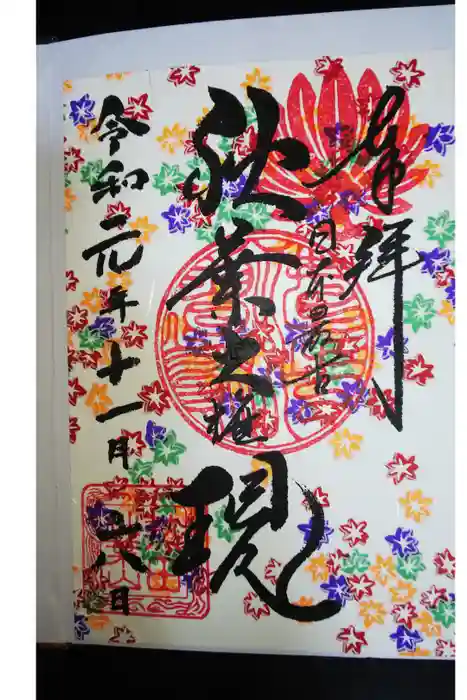 奉拝
日本最古
秋葉大権現
令和元年十一月廿八日